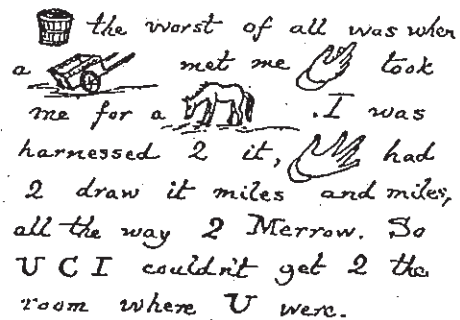 the worst of all was when
a met me took
me for a . I was
harnessed 2 it, had
2 draw it miles and miles,
all the way 2 Merrow. So
U C I couldn't get 2 the
room where U were.